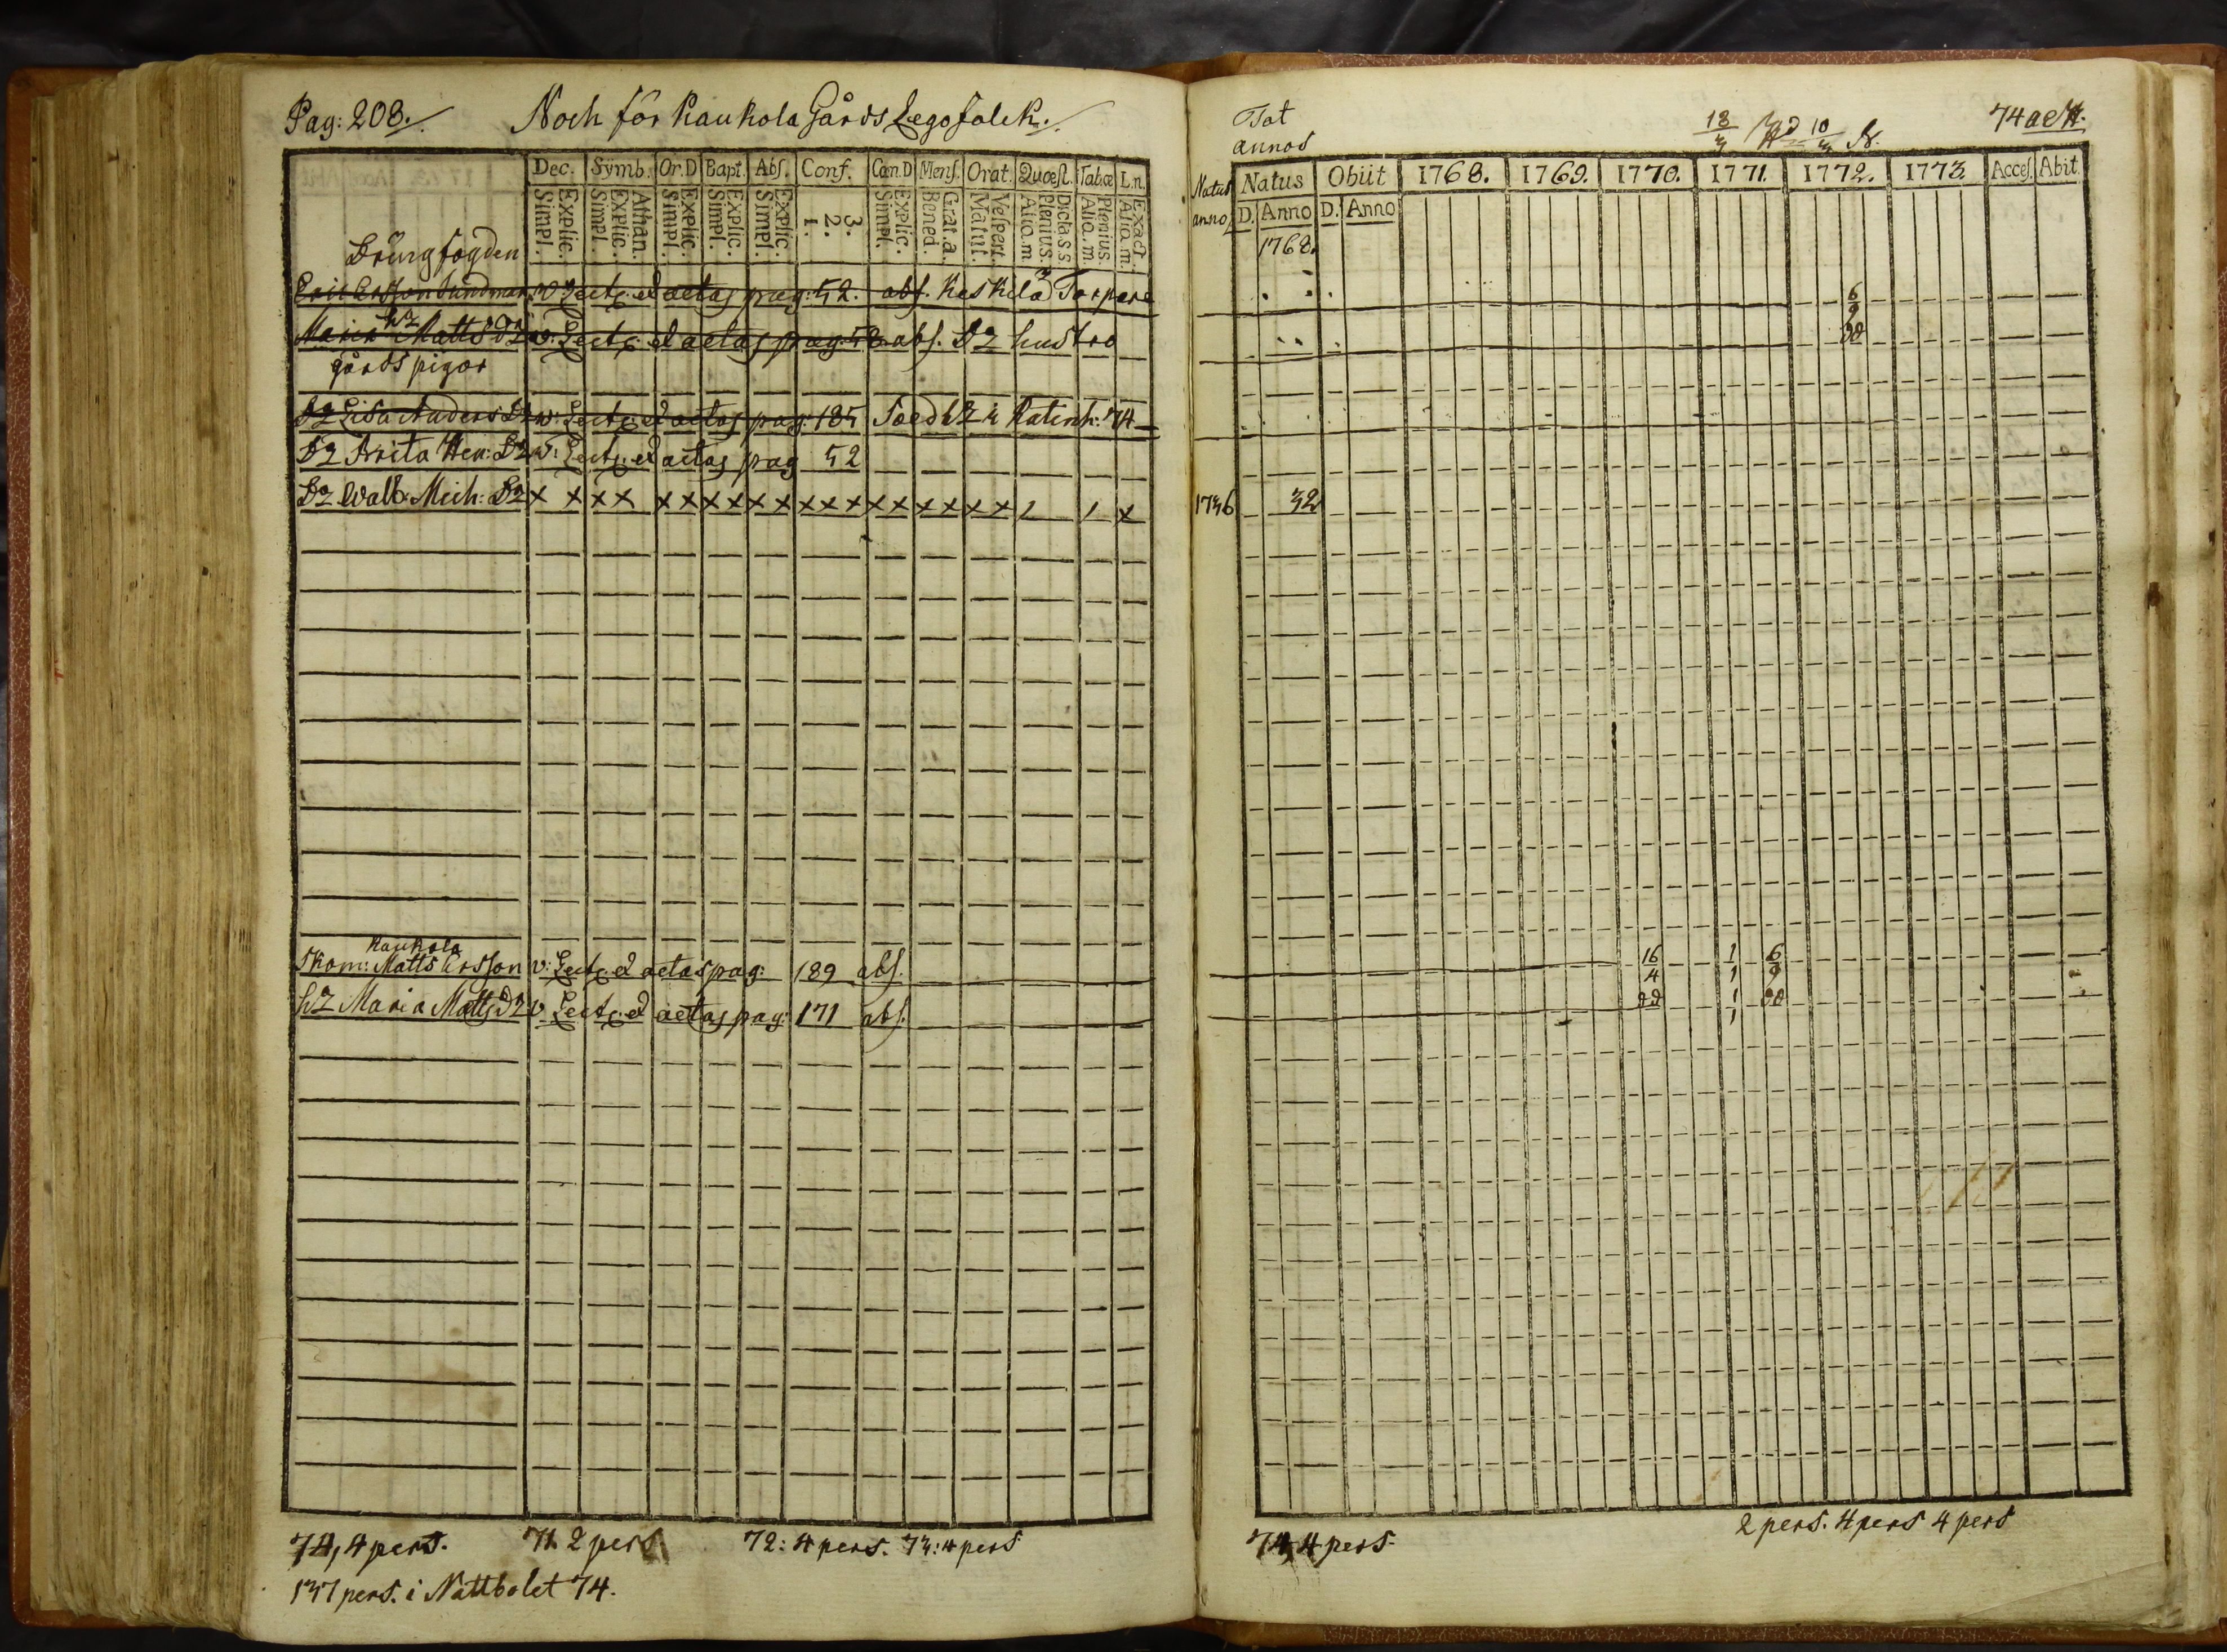 Pag: 208. Noch för Kaukola Gårds Legofolck.
Dec. Symb. Or.D Bapt. Abs. Conf. Cœn.D Mens. Orat. Quœst. Tabœ L.n.
Simpl. Explic. Simpl. Explic. Athan. Simpl. Explic. Simpl. Explic. Simpl. Explic. 1. 2. 3. Simpl. Explic. Bened. Grat.a. Matut. Vespert. Alio.m Plenius. Dicta s.s Alio.m Plenius. Alio.m. Exact.
Eric Ersson Sundman v: Lect: et aetas pag: 52. abs. Keskila Torpare
Maria Matts D2 v: Lect: et aetas pag: 52 abs. D2 hustro
gårds pigor
D2 Lisa Anders D2 v: Lect: et aetas pag: 185 74
D2 Brita Hen: D2 v: Lect: et aetas pag 52
D2 Walb: Mich: D2 x x x x x x x x x x x x x x x x x x x
Kaukola
Matts Ersson v: Lect: et aetas pag: 189 abs.
h2 Maria Matts D2 v Lect: et aetas pag: 171 abs.
74, 4 pers. 71. 2 pers 72: 4 pers. 73: 4 pers
137 pers. i Nattbolet 74.
Tot
annos
74
Natus
anno
Natus Obiit 1768. 1769. 1770. 1771. 1772. 1773. Acces. Abit.
D. Anno D. Anno
1768.
6
9
1736 32
16 1 6
4 1 9
1
1
2 pers. 4 pers 4 pers
74, 4 pers.